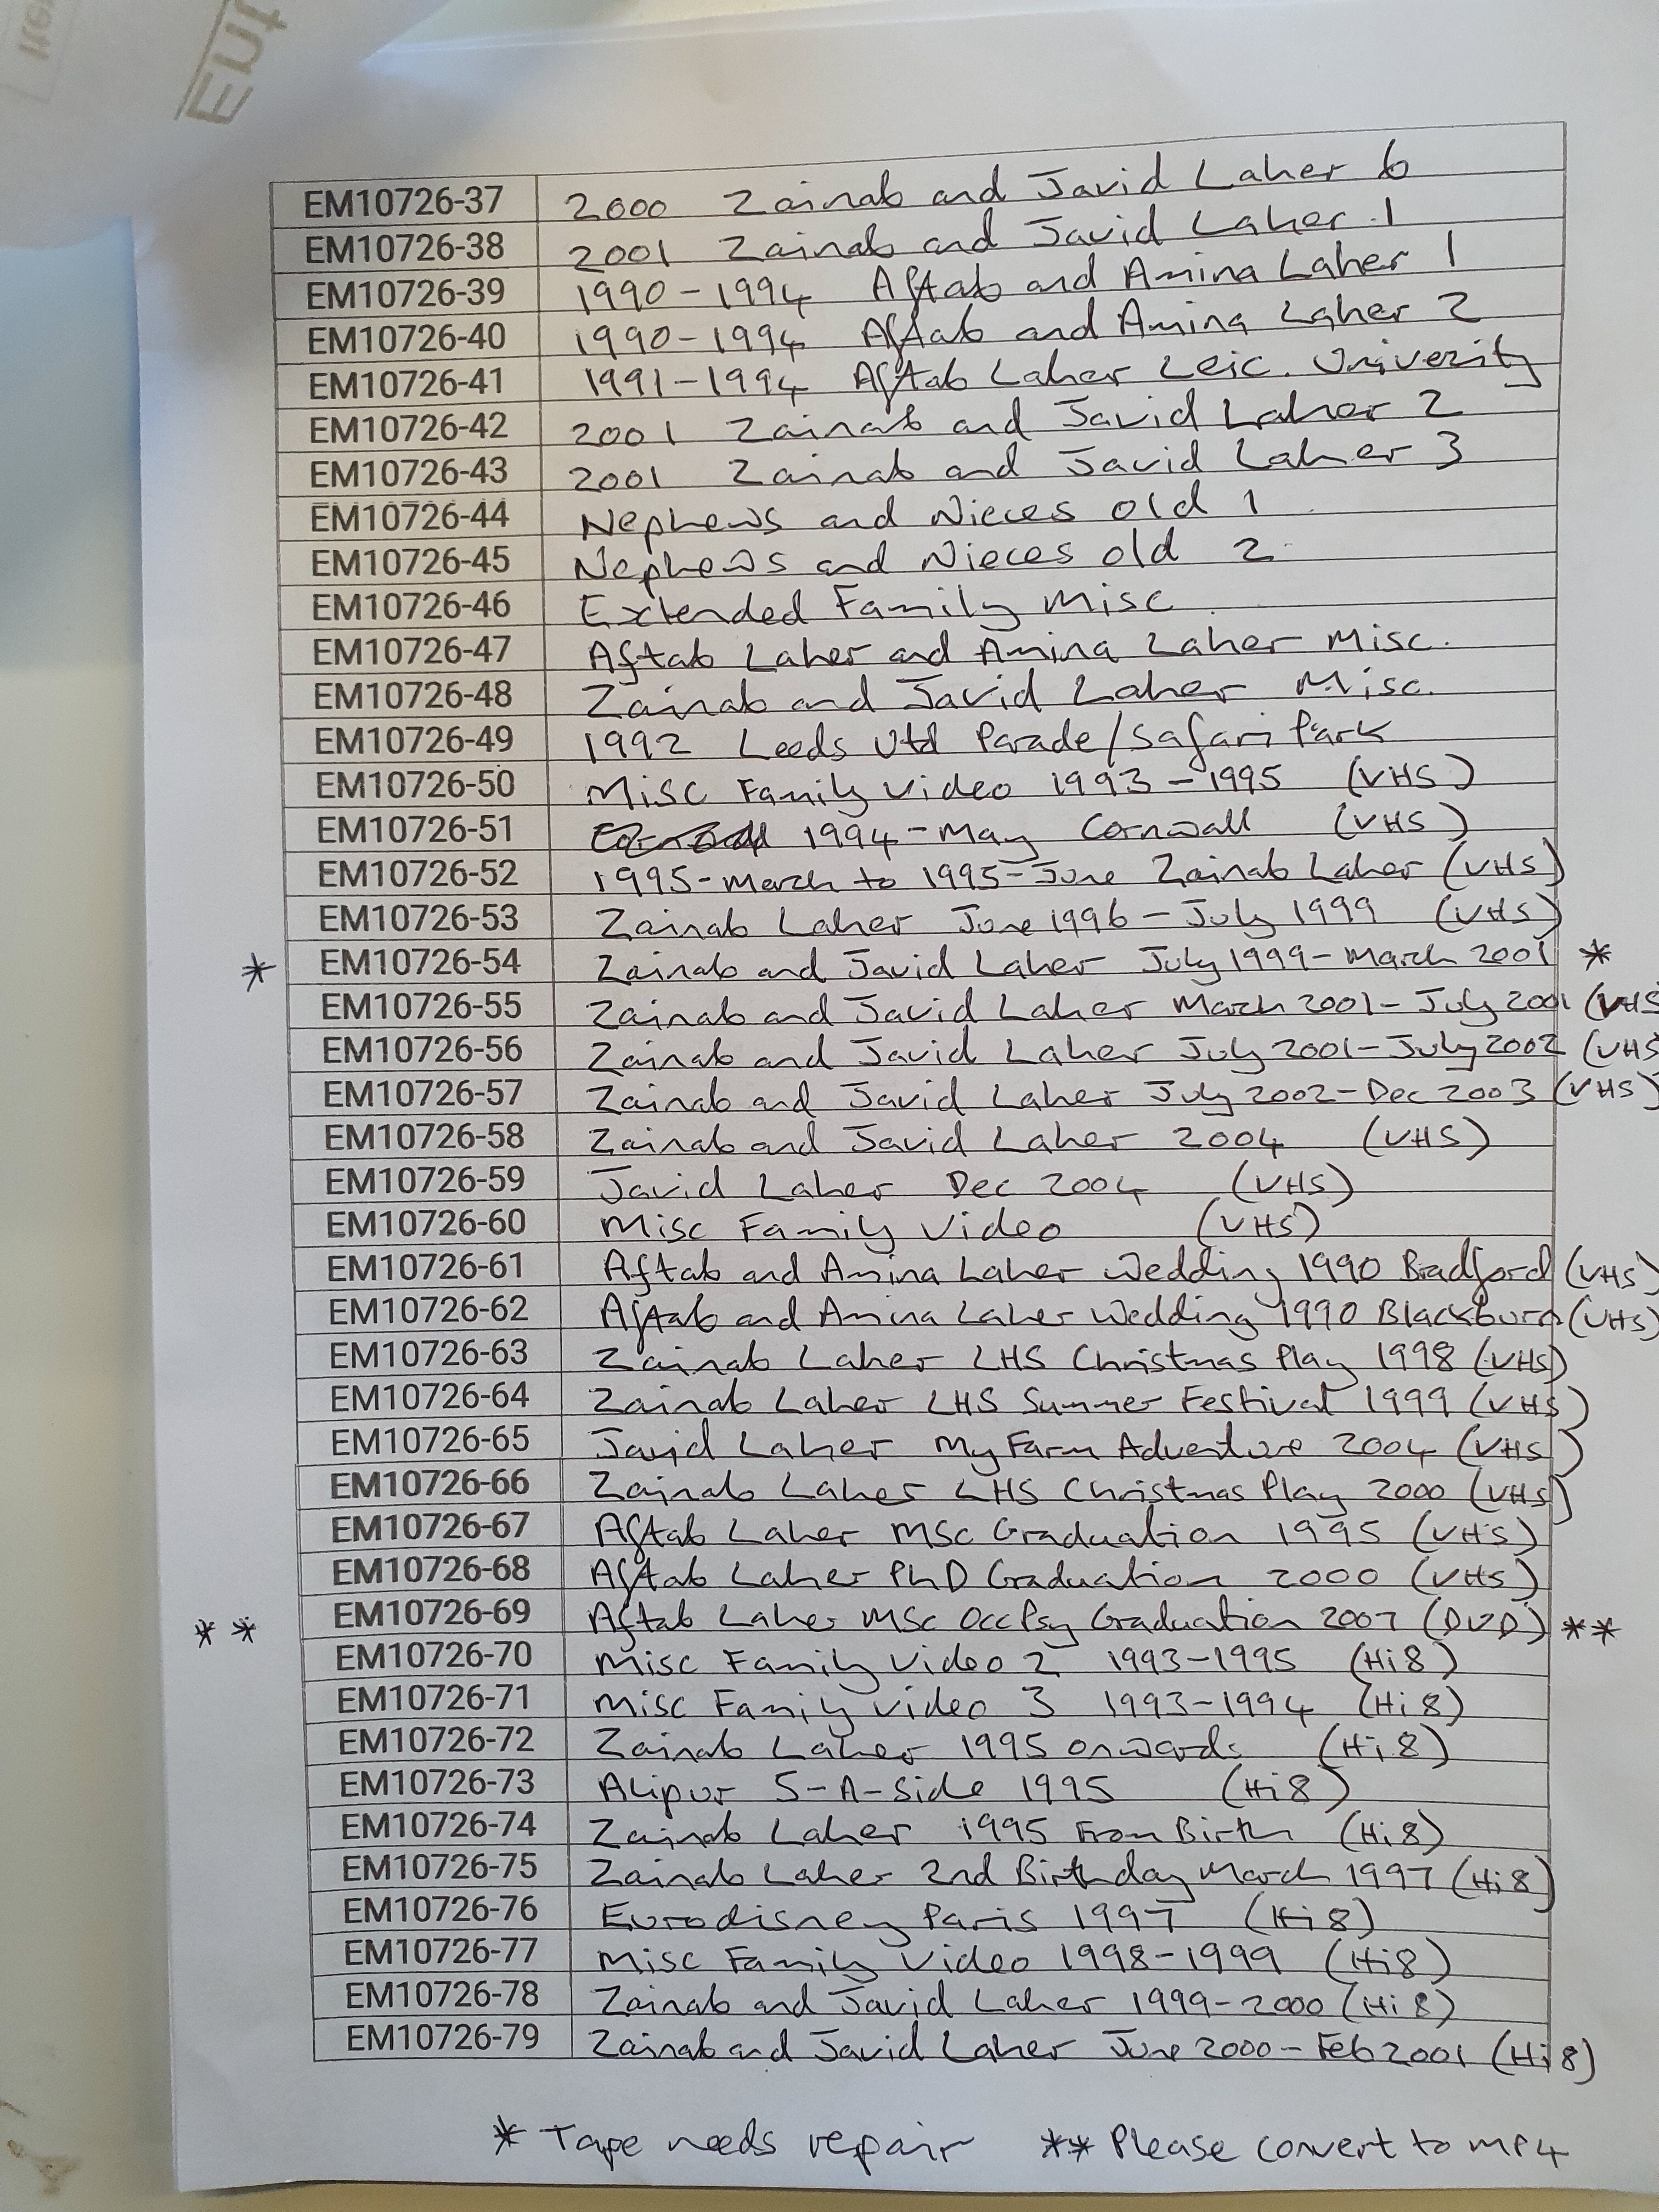 Ent
EM10726-37 2000 Zainab and Javid Laher 6
EM10726-38 2001 Zainab and Javid Laher 1
EM10726-39 1990-1994 Aftab and Amina Laher 1
EM10726-40 1990-1994 Aftab and Amina Laher 2
EM10726-41 1991-1994 Aftab Laher Leic. Univerity
EM10726-42 2001 Zainab and Javid Laher 2
EM10726-43 2001 Zainab and Javid Laher 3
EM10726-44 Nephews and Nieces old 1
EM10726-45 Nephews and Nieces old 2
EM10726-46 Extended Family Misc
EM10726-47 Aftab Laher and Amina Laher Misc.
EM10726-48 Zainab and Javid Laher Misc.
EM10726-49 1992 Leeds Utd Parade/Safari Park
EM10726-50 Misc Family Video 1993-1995 (VHS)
EM10726-51 1994-May Cornwall (VHS)
EM10726-52 1995-March to 1995-June Zainab Laher (VHS)
EM10726-53 Zainab Laher June 1996 - July 1999 (VHS)
* EM10726-54 Zainab and Javid Laher July 1999-March 2001 *
EM10726-55 Zainab and Javid Laher March 2001-July 2001 (VHS
EM10726-56 Zainab and Javid Laher July 2001-July 2002 (VHS
EM10726-57 Zainab and Javid Laher July 2002-Dec 2003 (VHS)
EM10726-58 Zainab and Javid Laher 2004 (VHS)
EM10726-59 Javid Laher Dec 2004 (VHS)
EM10726-60 Misc Family Video (VHS)
EM10726-61 Aftab and Amina Laher Wedding 1990 Bradford (VHS)
EM10726-62 Aftab and Amina Laher Wedding 1990 Blackburn (VHS)
EM10726-63 Zainab Laher LHS Christmas Play 1998 (VHS)
EM10726-64 Zainab Laher LHS Summer Festival 1999 (VHS)
EM10726-65 Javid Laher My Farm Adventure 2004 (VHS)
EM10726-66 Zainab Laher LHS Christmas Play 2000 (VHS)
EM10726-67 Aftab Laher MSc Graduation 1995 (VHS)
EM10726-68 Aftab Laher PhD Graduation 2000 (VHS)
** EM10726-69 Aftab Laher MSc Occ Psy Graduation 2007 (DVD) **
EM10726-70 Misc Family Video 2 1993-1995 (Hi8)
EM10726-71 Misc Family Video 3 1993-1994 (Hi8)
EM10726-72 Zainab Laher 1995 onwards (Hi8)
EM10726-73 Alipur 5-A-Side 1995 (Hi8)
EM10726-74 Zainab Laher 1995 From Birth (Hi8)
EM10726-75 Zainab Laher 2nd Birthday March 1997 (Hi8)
EM10726-76 Eurodisney Paris 1997 (Hi8)
EM10726-77 Misc Family Video 1998-1999 (Hi8)
EM10726-78 Zainab and Javid Laher 1999-2000 (Hi8)
EM10726-79 Zainab and Javid Laher June 2000 - Feb 2001 (Hi8)
* Tape needs repair ** Please convert to MP4